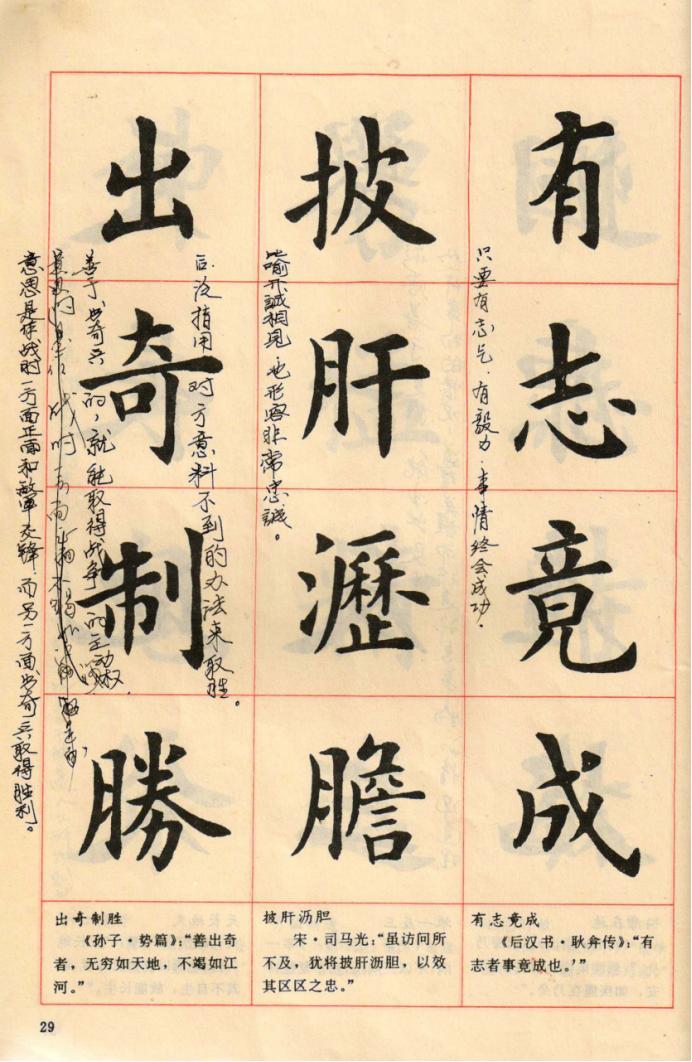 有志竟成
只要有志气.有毅力.事情终会成功.
披肝瀝膽
喻开誠相見.也形容非常忠誠。
出奇制勝
后泛指用对方意料不到的办法来取胜。
善于出奇兵的,就能取得战争的主动权.
意思是作战时一方面正面和敌军交锋.而另一方面出奇兵取得胜利。
出奇制胜
《孙子·势篇》:“善出奇
者,无穷如天地,不竭如江
河。”
披肝沥胆
宋·司马光:“虽访问所
不及,犹将披肝沥胆,以效
其区区之忠。”
有志竟成
《后汉书·耿弇传》:“有
志者事竟成也。’”
29